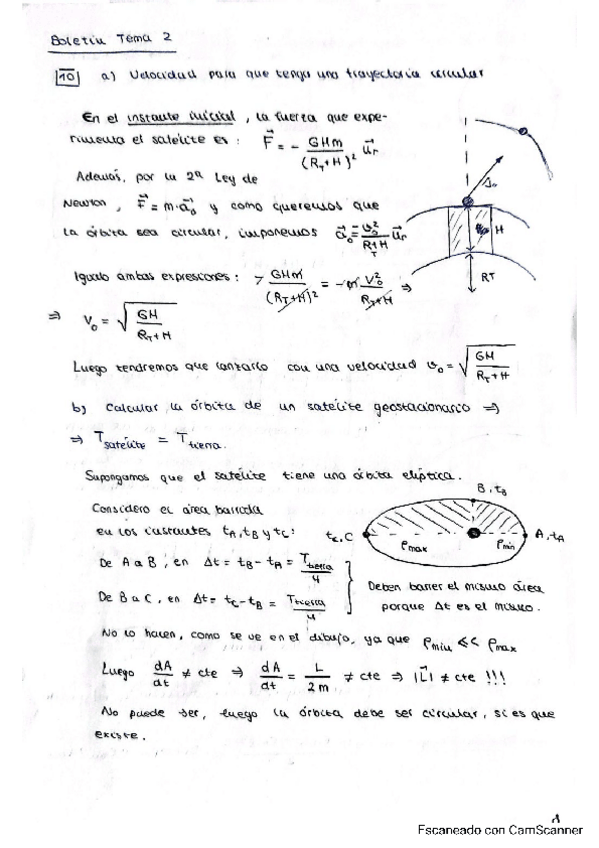 Boletín Tema 2
10 a) Velocidad para que tenga una trayectoria circular
En el instante inicial, la fuerza que expe-
rimenta el satélite es: F⃗ = - GMm/(R_T+H)² u⃗r
Además, por la 2ª Ley de
Newton, F⃗ = m·a⃗₀ y como queremos que
la órbita sea circular, imponemos a⃗₀ = v₀²/(R_T+H) u⃗r
Igualo ambas expresiones: - GMm/(R_T+H)² = -m v₀²/(R_T+H) ⇒
⇒ v₀ = √(GM/(R_T+H))
Luego tendremos que lanzarlo con una velocidad v₀ = √(GM/(R_T+H))
H
RT
b) Calcular la órbita de un satélite geostacionario ⇒
⇒ T satélite = T tierra.
Supongamos que el satélite tiene una órbita elíptica.
Considero el área barrida
en los instantes t_A, t_B y t_C:
B, t_B
t_C, C
A, t_A
ρmax
ρmin
De A a B, en Δt = t_B - t_A = T tierra/4
De B a C, en Δt = t_C - t_B = T tierra/4
Deben barrer el mismo área
porque Δt es el mismo.
No lo hacen, como se ve en el dibujo, ya que ρmin << ρmax
Luego dA/dt ≠ cte ⇒ dA/dt = L/2m ≠ cte ⇒ |L⃗| ≠ cte !!!
No puede ser, luego la órbita debe ser circular, si es que
existe.
1
Escaneado con CamScanner